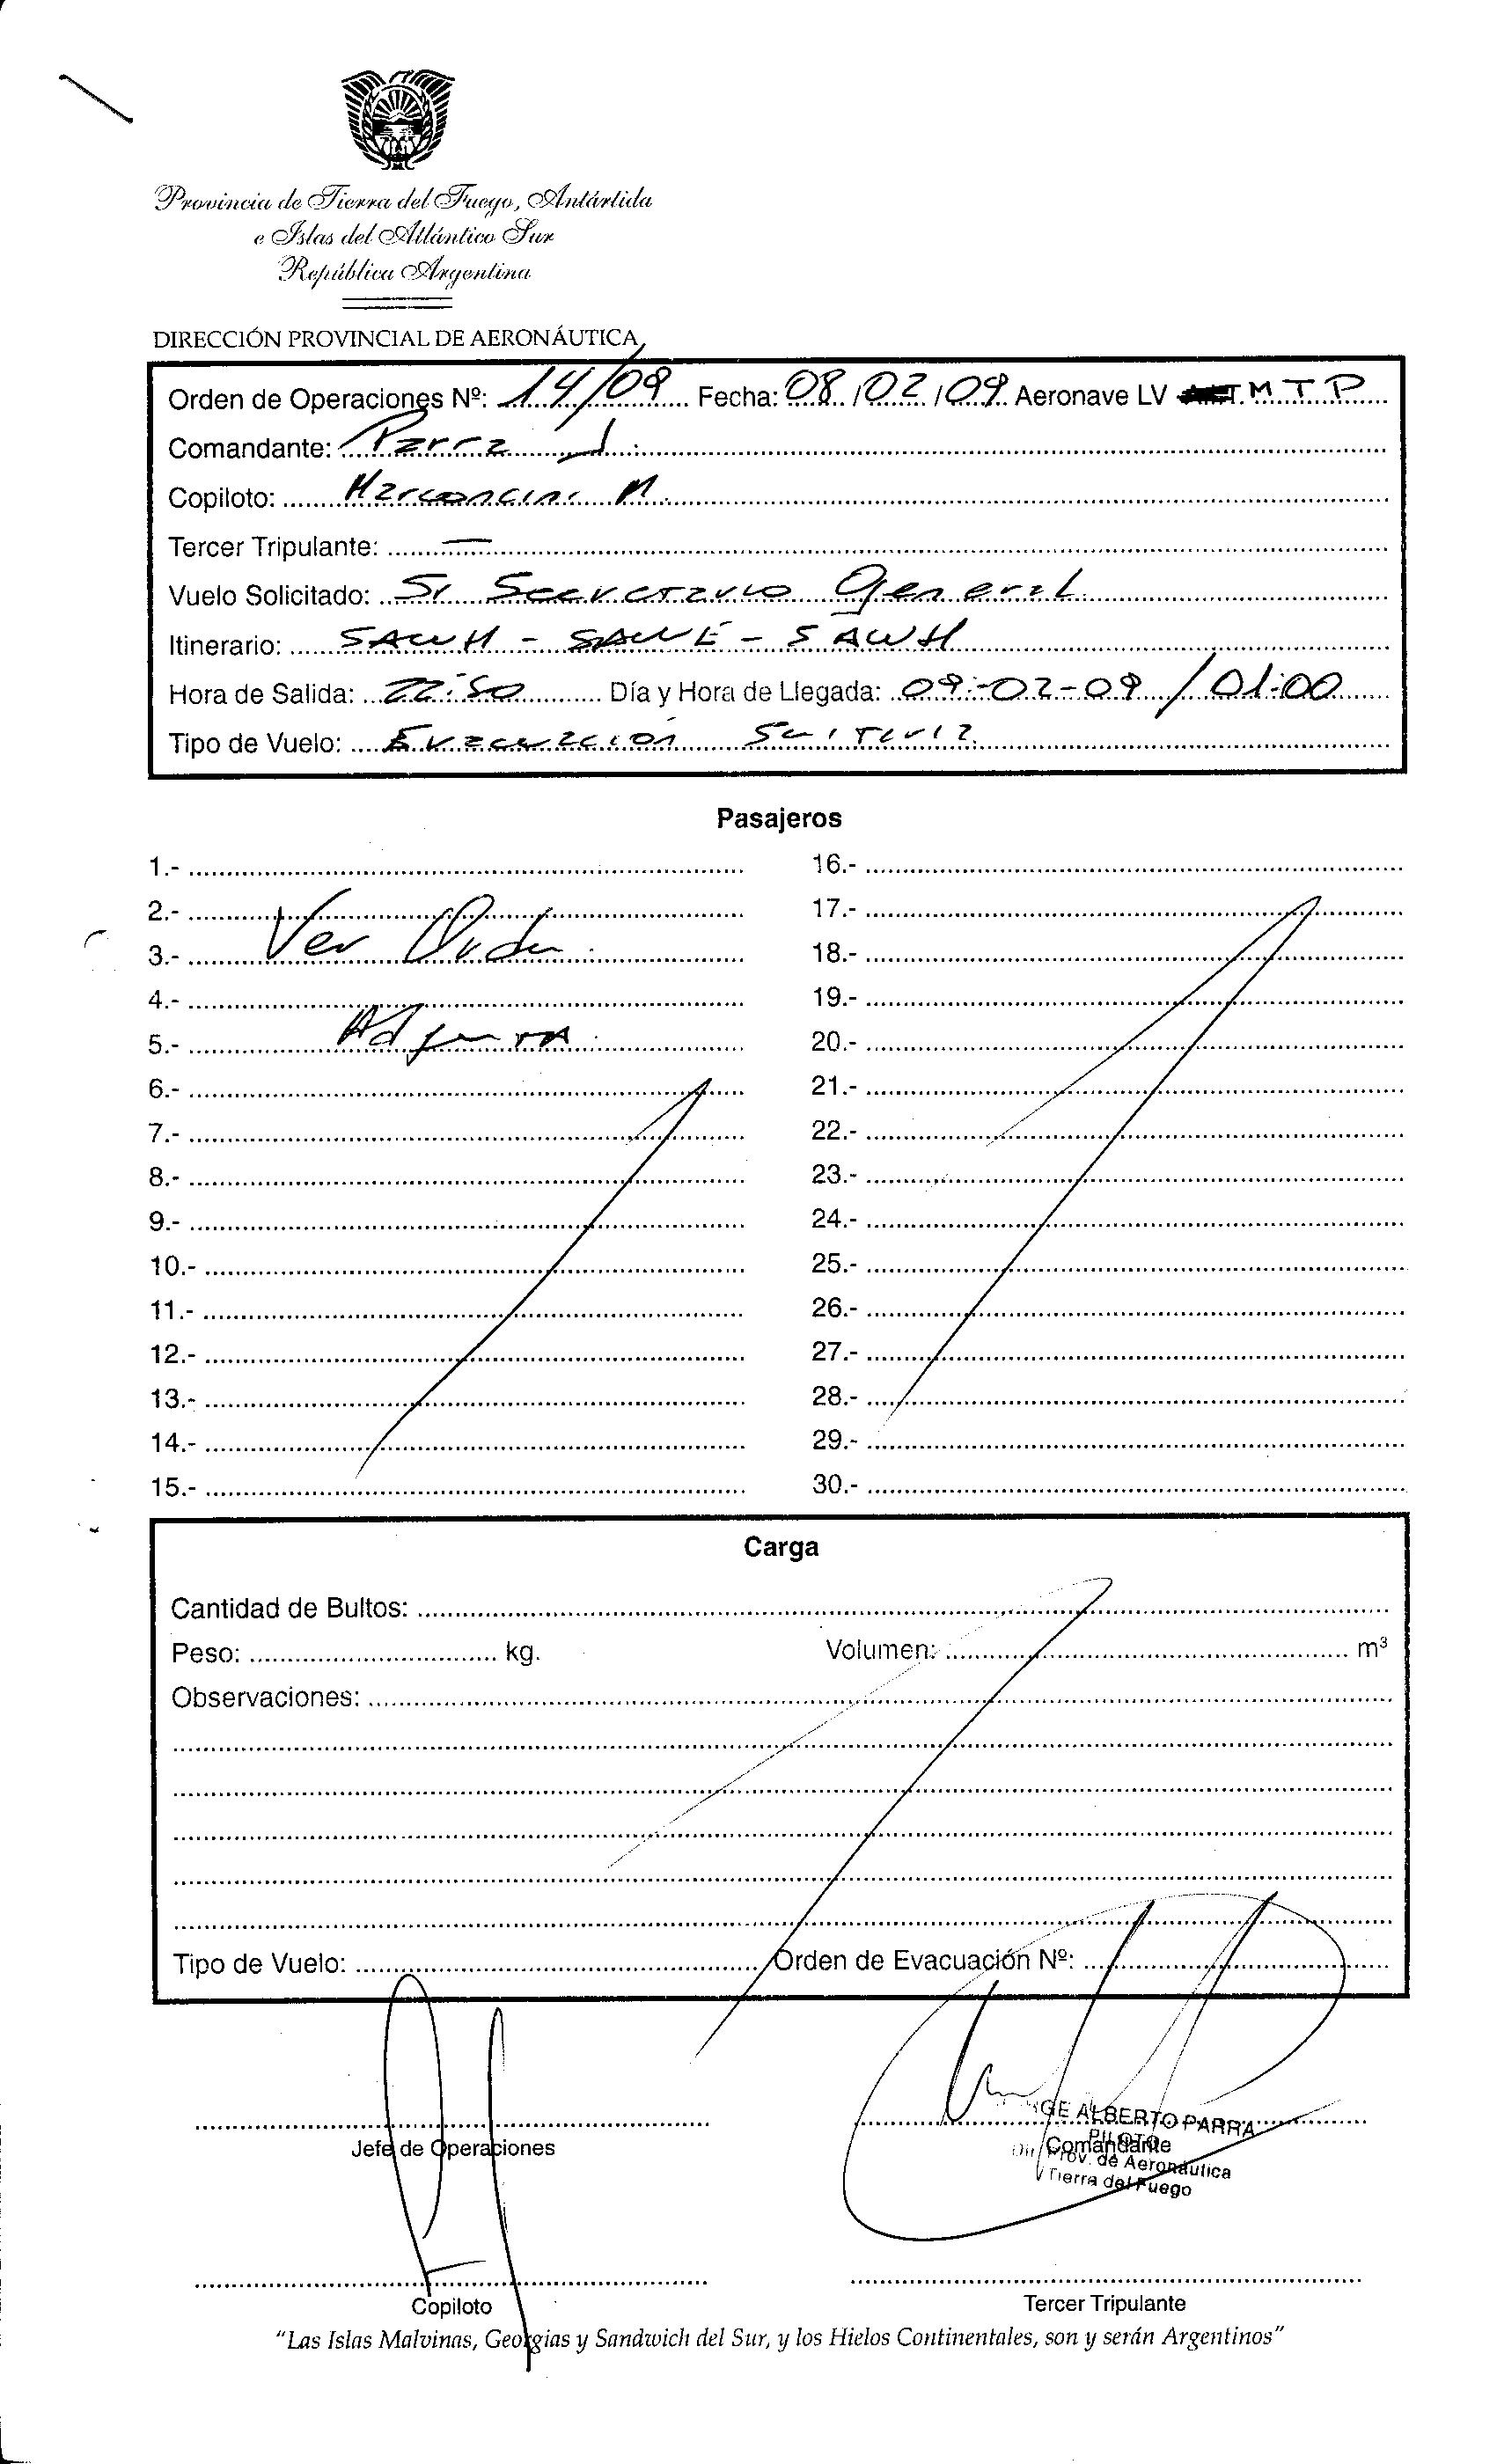 Provincia de Tierra del Fuego, Antártida
e Islas del Atlántico Sur
República Argentina
DIRECCIÓN PROVINCIAL DE AERONÁUTICA
Orden de Operaciones Nº: 14/09 Fecha: 08/02/09 Aeronave LV MTP
Comandante: Parra J.
Copiloto: Marconcini M.
Tercer Tripulante: —
Vuelo Solicitado: Sr Secretario General
Itinerario: SAWH - SAWE - SAWH
Hora de Salida: 22:50 Día y Hora de Llegada: 09-02-09 / 01:00
Tipo de Vuelo: Evacuación
Pasajeros
1.- 16.-
2.- 17.-
3.- Ver Orden 18.-
4.- 19.-
5.- Adjunta 20.-
6.- 21.-
7.- 22.-
8.- 23.-
9.- 24.-
10.- 25.-
11.- 26.-
12.- 27.-
13.- 28.-
14.- 29.-
15.- 30.-
Carga
Cantidad de Bultos:
Peso: kg. Volumen: m³
Observaciones:
Tipo de Vuelo: Orden de Evacuación Nº:
ALBERTO PARRA
PILOTO
Jefe de Operaciones Comandante
Prov. de Aeronáutica
Tierra del Fuego
Copiloto Tercer Tripulante
"Las Islas Malvinas, Georgias y Sandwich del Sur, y los Hielos Continentales, son y serán Argentinos"